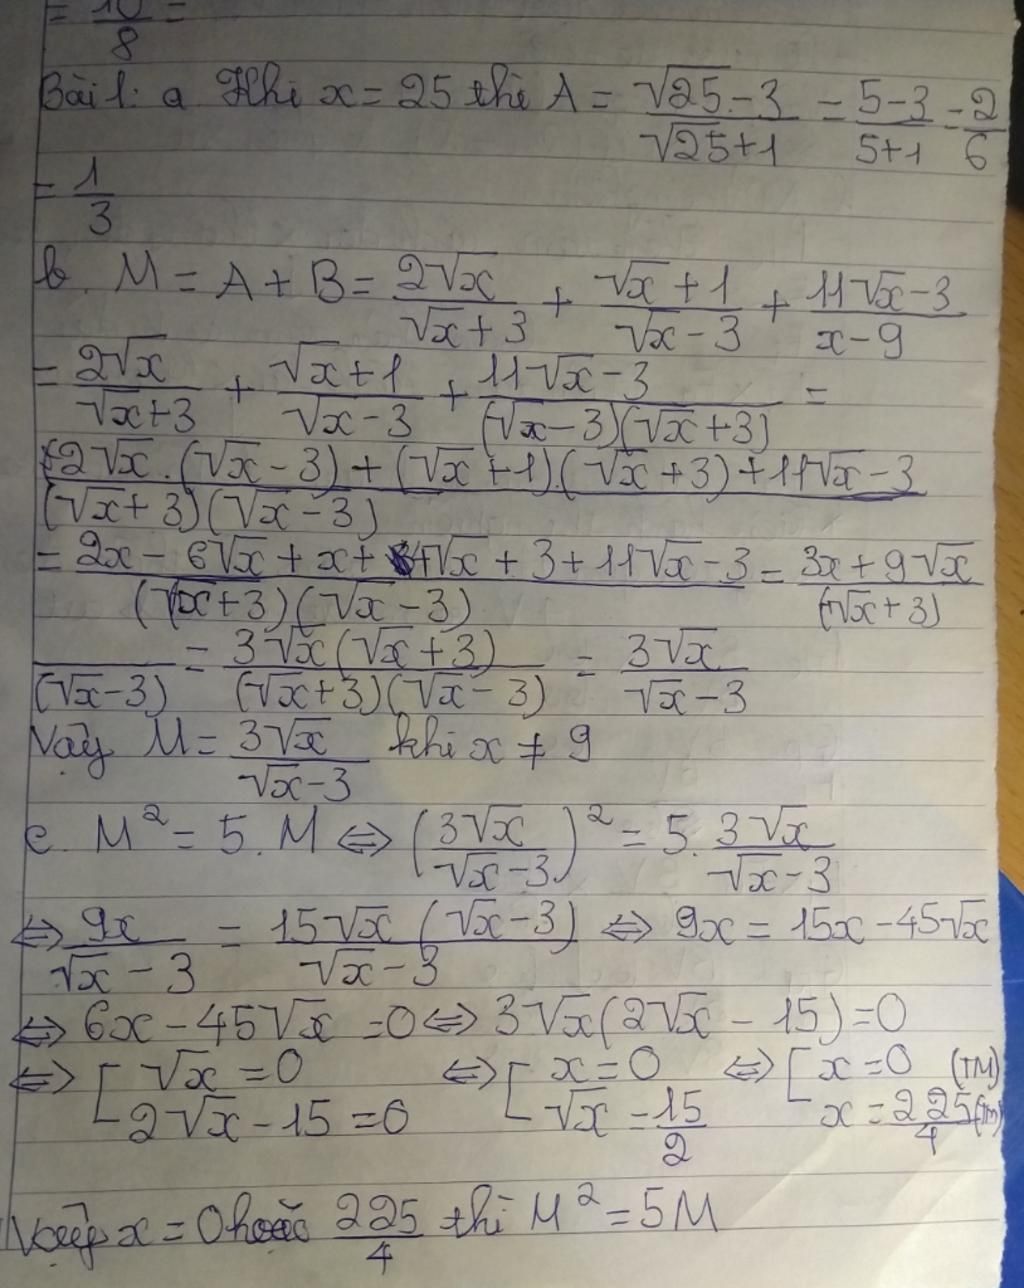 = 10/8 =
Bài 1: a Khi x = 25 thì A = (√25 - 3)/(√25 + 1) = (5-3)/(5+1) = 2/6
= 1/3
b. M = A + B = 2√x/(√x + 3) + (√x + 1)/(√x - 3) + (11√x - 3)/(x - 9)
= 2√x/(√x+3) + (√x+1)/(√x-3) + (11√x - 3)/((√x - 3)(√x + 3)) =
(2√x.(√x - 3) + (√x + 1).(√x + 3) + 11√x - 3)/((√x + 3)(√x - 3))
= (2x - 6√x + x + 4√x + 3 + 11√x - 3)/((√x+3)(√x - 3)) = (3x + 9√x)/(√x + 3)
/(√x - 3) = 3√x(√x + 3)/((√x+3)(√x - 3)) = 3√x/(√x - 3)
Vậy M = 3√x/(√x - 3) khi x ≠ 9
c. M² = 5. M ⇔ (3√x/(√x - 3))² = 5. 3√x/(√x - 3)
⇔ 9x/(√x - 3) = 15√x (√x - 3)/(√x - 3) ⇔ 9x = 15x - 45√x
⇔ 6x - 45√x = 0 ⇔ 3√x(2√x - 15) = 0
⇔ [ √x = 0 ⇔ [ x = 0 ⇔ [ x = 0 (TM)
2√x - 15 = 0 √x = 15/2 x = 225/4 (TM)
Vậy x = 0 hoặc 225/4 thì M² = 5M